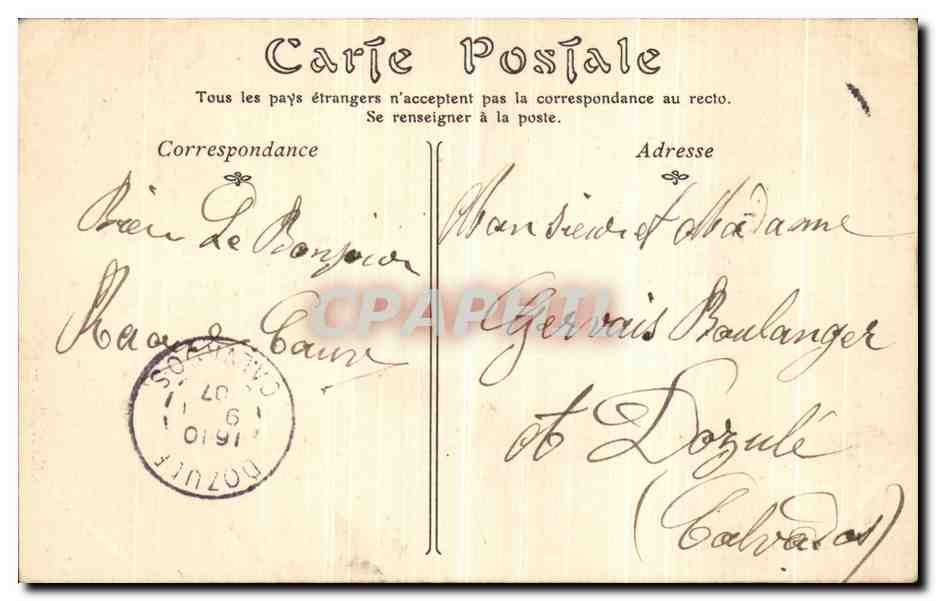 Carte Postale
Tous les pays étrangers n'acceptent pas la correspondance au recto.
Se renseigner à la poste.
Correspondance
Bien Le Bonjour
CALVADOS
DOZULE
16 10
9
07
Adresse
Monsieur et Madame
Gervais Boulanger
A Dozulé
(Calvados)
CPAPHIL